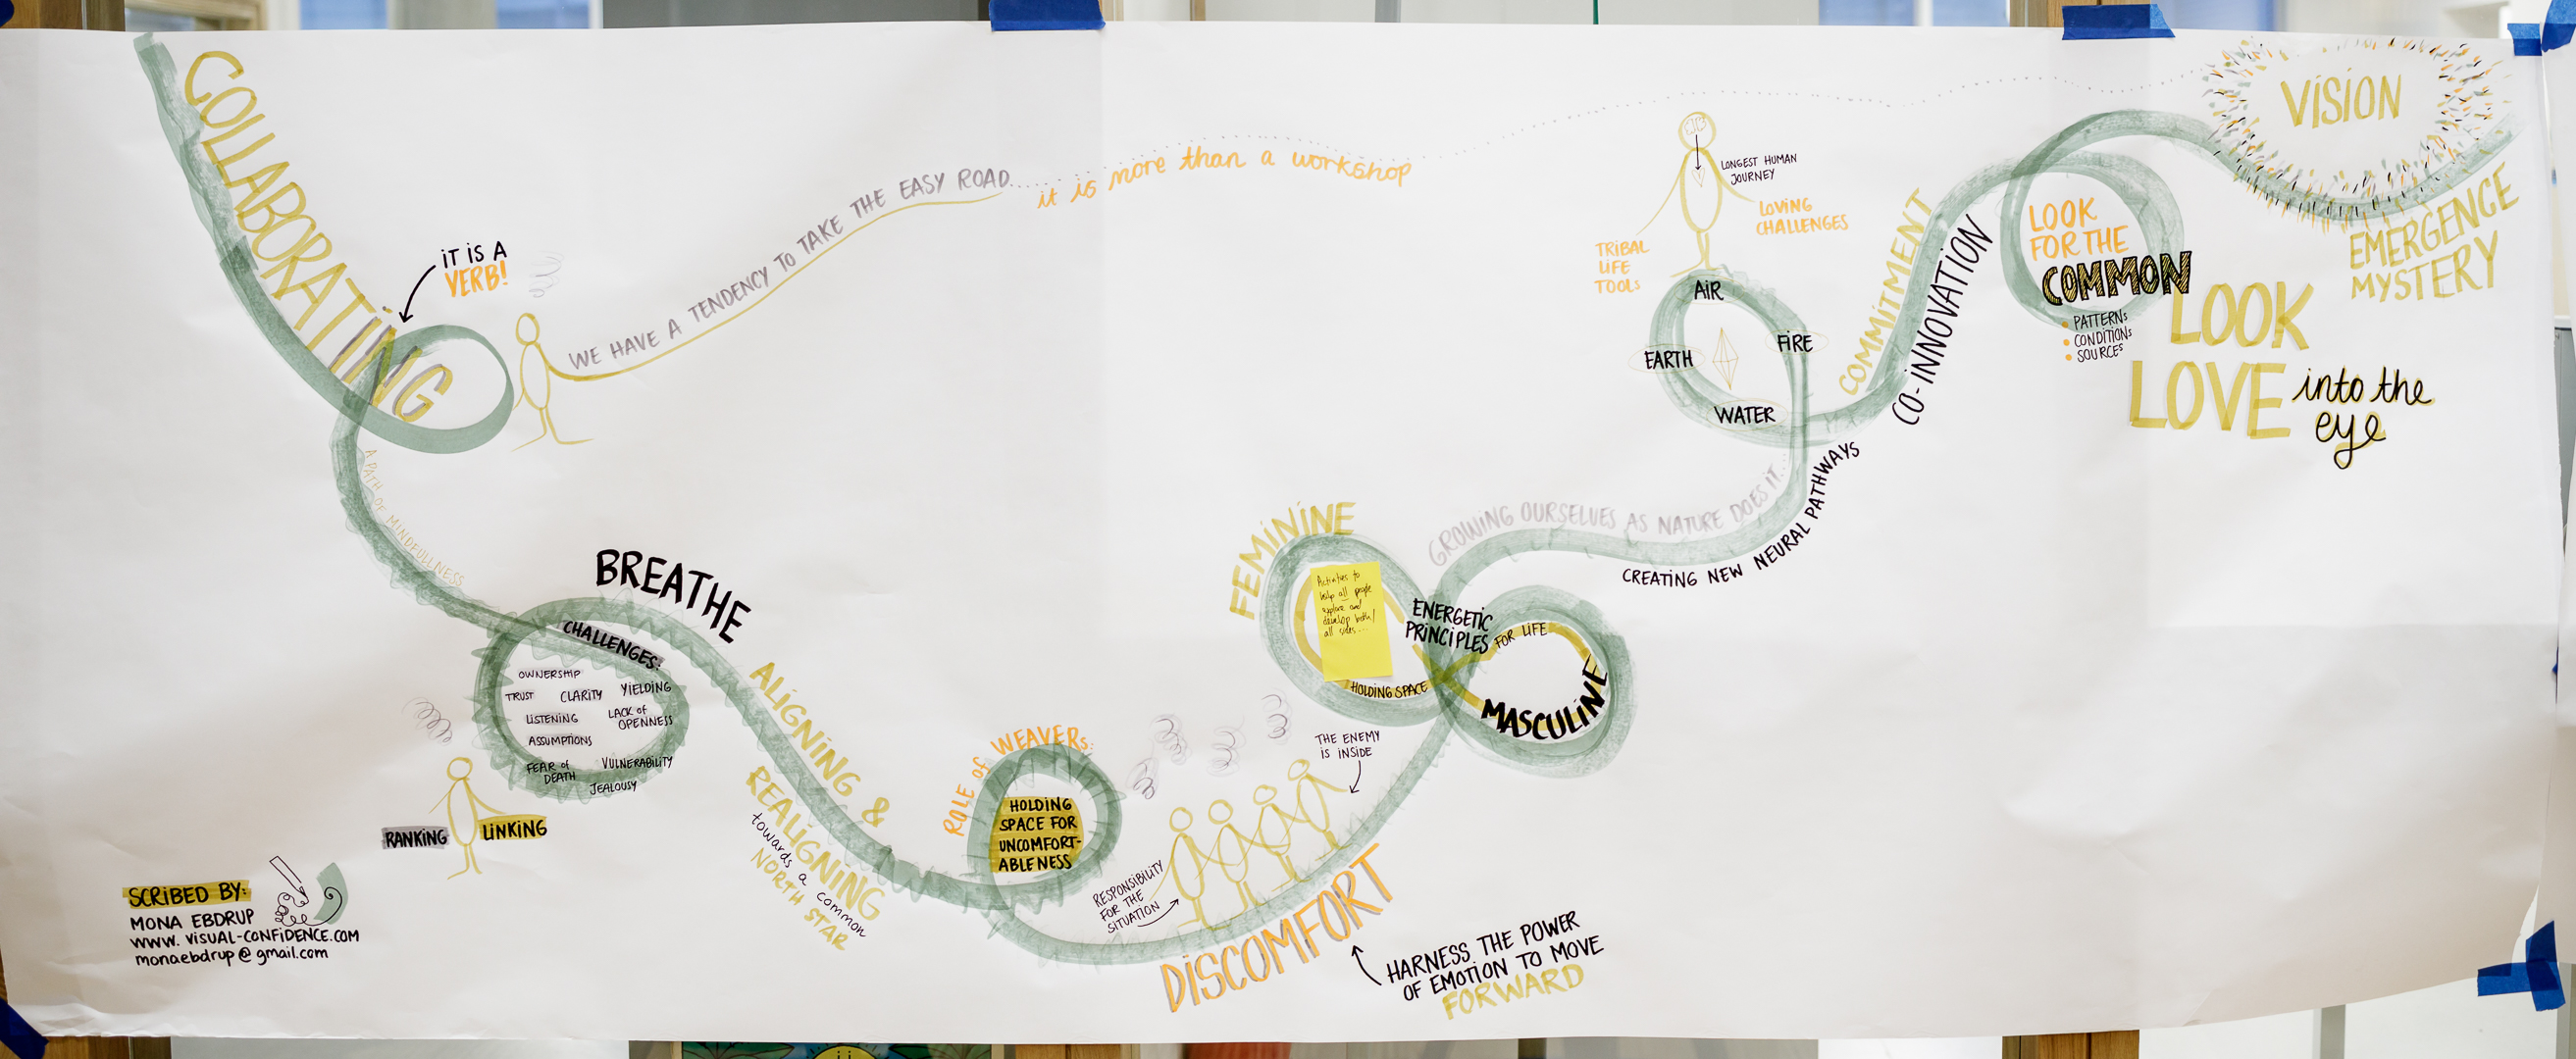 COLLABORATING
iT iS A
VERB!
WE HAVE A TENDENCY TO TAKE THE EASY ROAD
it is more than a workshop
A PATH OF MINDFULLNESS
BREATHE
CHALLENGES:
OWNERSHIP
TRUST CLARITY YiELDING
LISTENING
LACK of
OPENNESS
ASSUMPTIONS
FEAR of
DEATH
VULNERABILITY
JEALOUSY
RANKING
LINKING
SCRiBED BY:
MONA EBDRUP
WWW. ViSUAL-CONFiDENCE.COM
monaebdrup@gmail.com
ALiGNiNG &
REALiGNiNG
towards a common
NORTH STAR
ROLE of WEAVERS:
HOLDING
SPACE FOR
UNCOMFORT-
ABLENESS
RESPONSIBILITY
FOR THE
SITUATION
THE ENEMY
iS iNSiDE
DiSCOMFORT
HARNESS THE POWER
OF EMOTION TO MOVE
FORWARD
FEMiNiNE
Activities to
help all people
explore and
develop both/
all sides...
HOLDING SPACE
ENERGETIC
PRiNCiPLES
FOR LiFE
MASCULiNE
GROWiNG OURSELVES AS NATURE DOES iT...
CREATiNG NEW NEURAL PATHWAYS
TRiBAL
LiFE
TOOLS
LONGEST HUMAN
JOURNEY
LOViNG
CHALLENGES
AiR
EARTH
FiRE
WATER
COMMiTMENT
CO-iNNOVATiON
LOOK
FOR THE
COMMON
• PATTERNS
• CONDiTiONS
• SOURCES
ViSiON
EMERGENCE
MYSTERY
LOOK
LOVE into the
eye